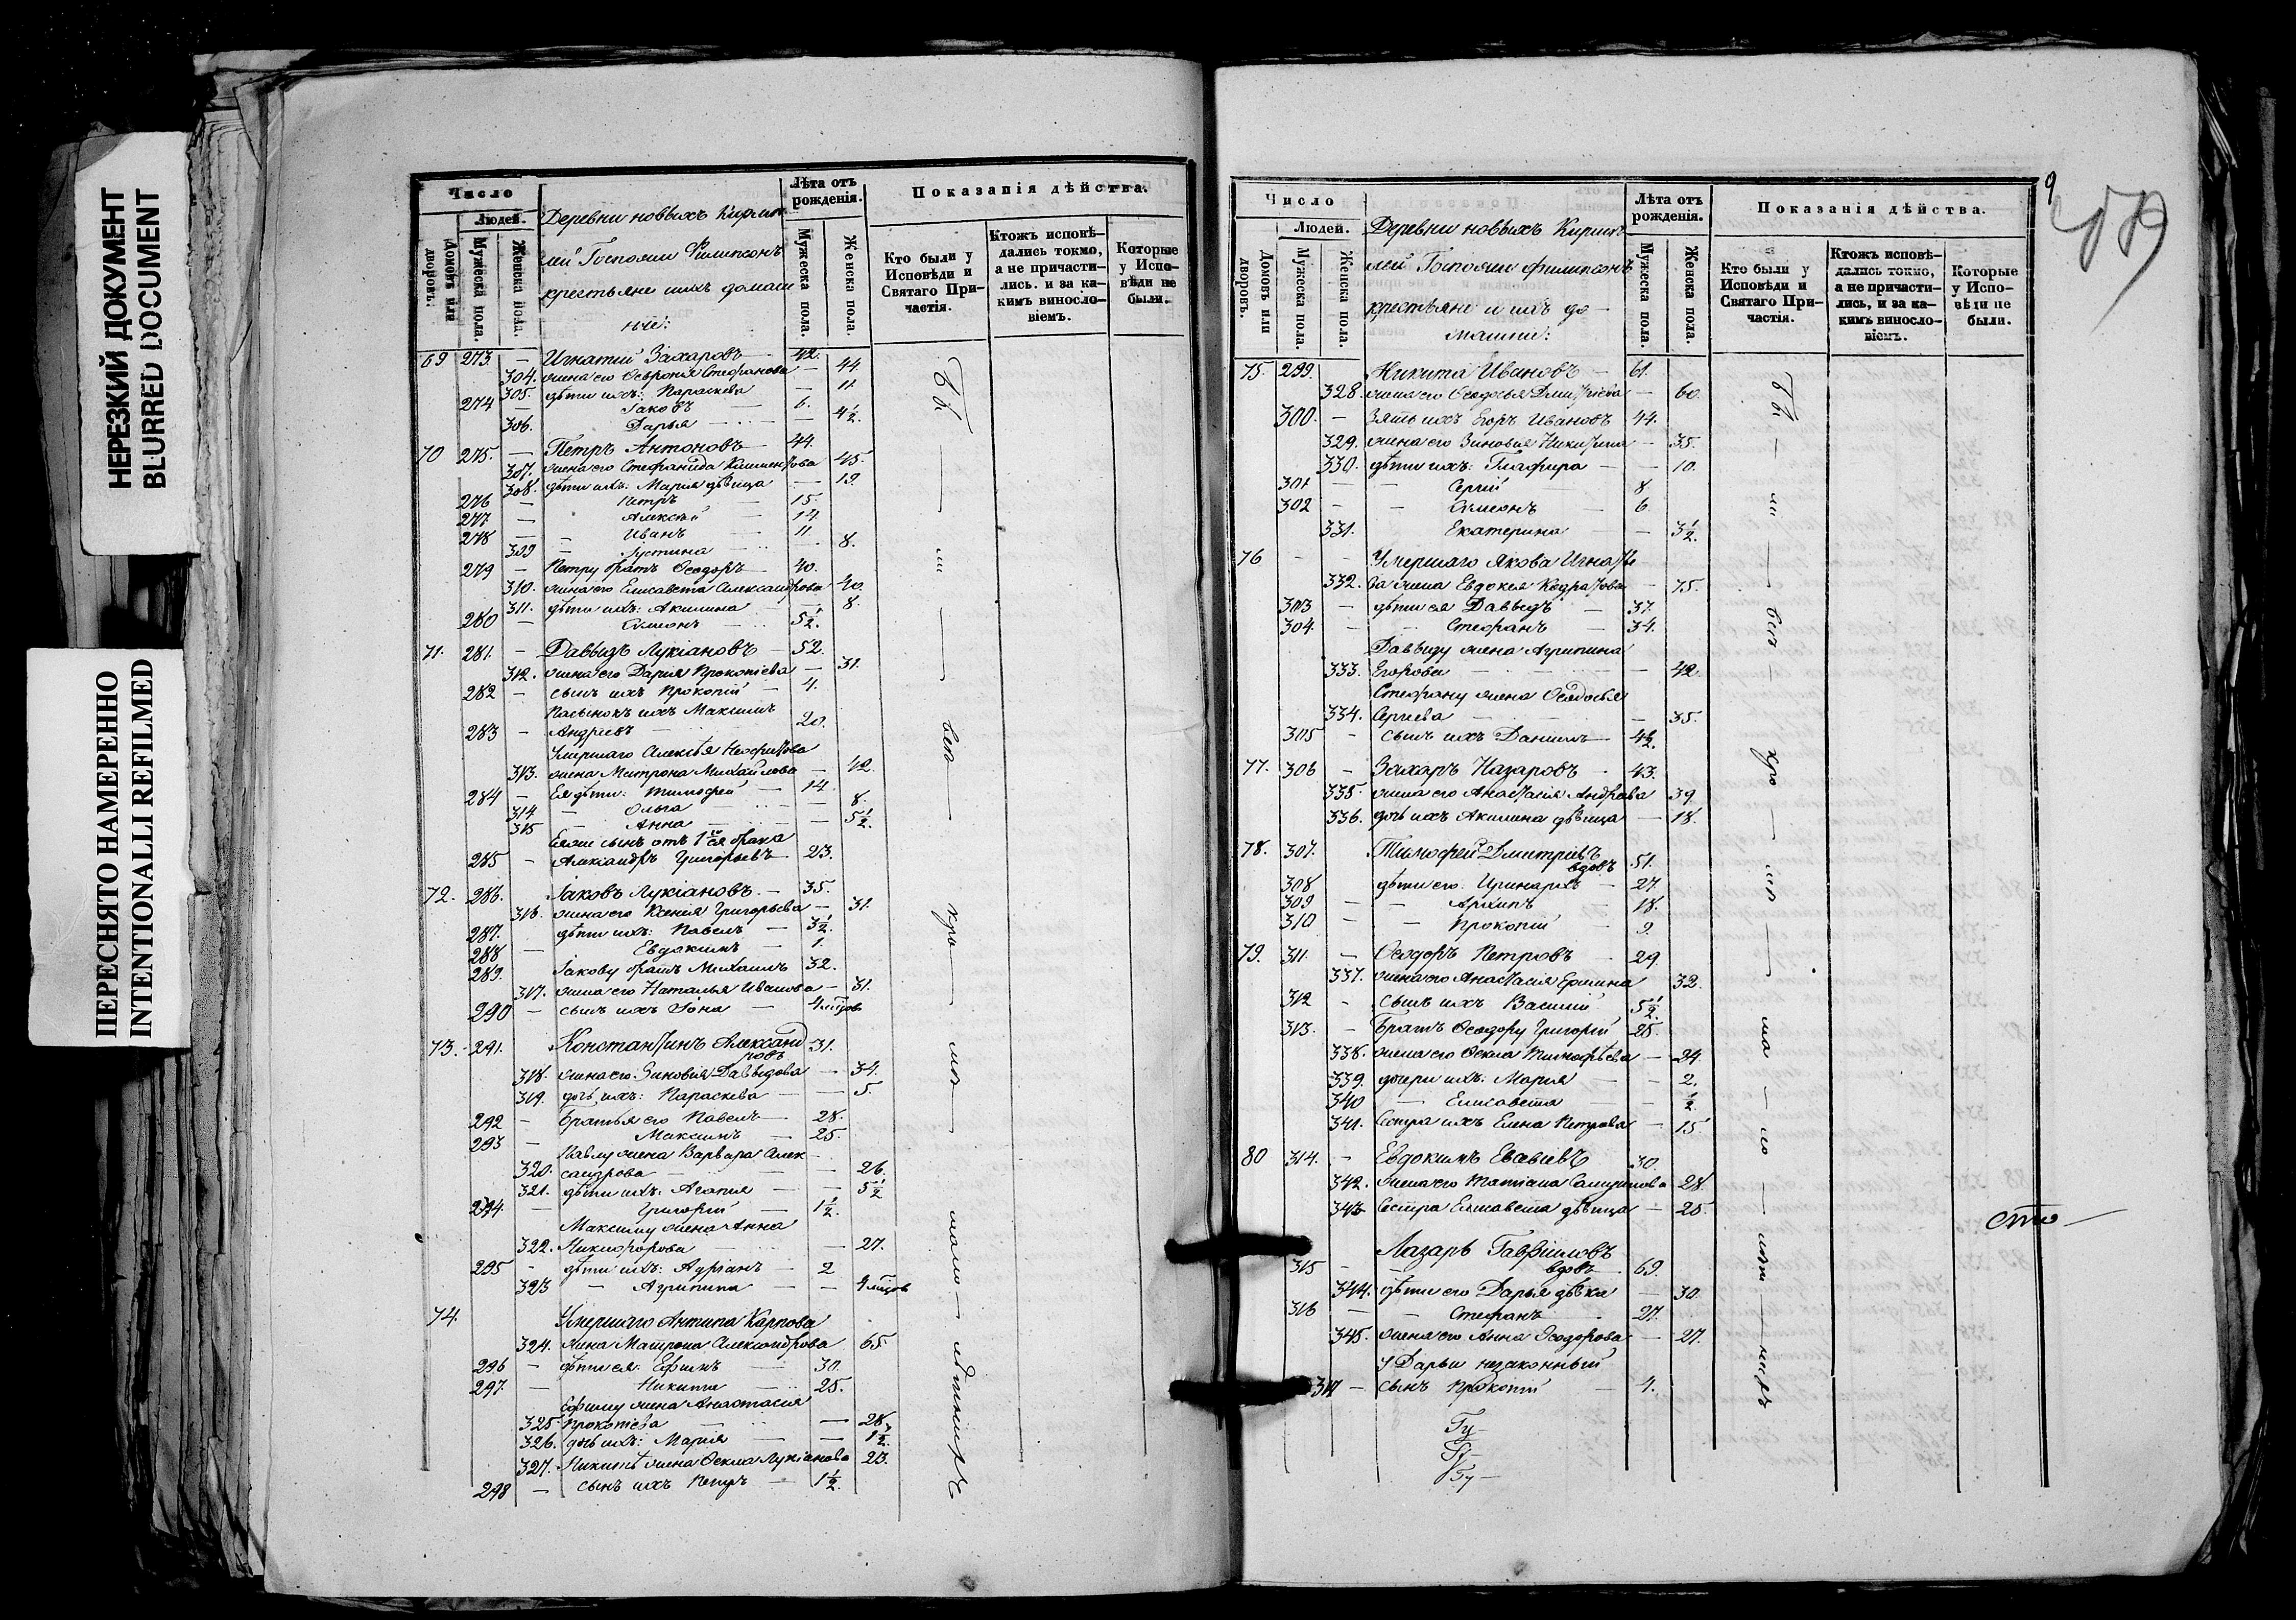 НЕРЕЗКИЙ ДОКУМЕНТ
BLURRED DOCUMENT
ПЕРЕСНЯТО НАМЕРЕННО
INTENTIONALLI REFILMED
Число
Людей.
Домовъ или дворовъ.
Мужеска пола.
Женска пола.
Деревни новыхъ
Госпожи Филипсонъ
крестьяне и ихъ домаш
ніе:
Лѣта отъ рожденія.
Мужеска пола.
Женска пола.
Показанія дѣйства.
Кто были у Исповѣди и Святаго Причастія.
Ктожъ исповѣдались токмо, а не причастились. и за какимъ винословіемъ.
Которые у Исповѣди не были.
69 273. — Игнатій Захаровъ — 42.
304. жена его Ѳевронія Стефанова — 44
305. дѣти ихъ: Параскева — 11
274 — Іаковъ — 6.
306. Дарья — 4½
70 275. — Петръ Антоновъ — 44.
307. жена его Стефанида — 45.
308. дѣти ихъ: Марія дѣвица — 19
276 — Петръ — 15.
277 — Алексѣй — 14
278 — Иванъ — 11
309 — Іустина — 8.
279 — Петру братъ Ѳеодоръ — 40.
310. жена его Елисавета Александрова 40.
311. дѣти ихъ: Акилина — 8.
280 — Симеонъ — 5½.
71. 281. — Даввидъ Лукіановъ — 52.
312. жена его Дарія Прокопіева — 31.
282 — сынъ ихъ Прокопій — 4.
Пасынокъ ихъ Максимъ
283 — Андріевъ — 20.
Умершаго Алексѣя
313. жена Матрона Михайлова — 42.
284 — Ея дѣти: Тимофей — 14
314 — Ольга — 8.
315 — Анна — 5½.
сынъ отъ 1го брака
285 — Александръ Григорьевъ — 23.
72. 286. Іаковъ Лукіановъ — 35.
316. жена его Ксенія Григорьева — 31.
287. дѣти ихъ: Павелъ — 3½.
288 — Евдокимъ — 1.
289. Іакову братъ Михаилъ 32.
317. жена его Наталья Иванова — 31.
290 — сынъ ихъ Іона —
73. 291. Константинъ Александ
ровъ 31.
318. жена его Зиновія Даввидова — 34.
319. дочь ихъ: Параскева — 5.
292 — Братья его Павелъ — 28.
293 — Максимъ — 25.
Павлу жена Варвара Алек-
320. сандрова — 26.
321. дѣти ихъ: Агапія — 5½
294. — Григорій — 1½.
Максиму жена Анна
322. Никифорова — 27.
295 — дѣти ихъ: Адріанъ — 2
323 — Агрипина —
74. Умершаго Антипа Карпова
324. жена Матрона Александрова 65
296 — дѣти ея: Ефимъ — 30.
297. — Никита — 25.
Ефиму жена Анастасія
325 Прокопіева — 28,
326. дочь ихъ: Марія — 1½.
327. Никитѣ жена Ѳекла Лукіанова 23.
298 — сынъ ихъ Петръ — 1½.
9
Число
Людей.
Домовъ или дворовъ.
Мужеска пола.
Женска пола.
Деревни новыхъ
Госпожи Филипсонъ
крестьяне и ихъ до-
машніе:
Лѣта отъ рожденія.
Мужеска пола.
Женска пола.
Показанія дѣйства.
Кто были у Исповѣди и Святаго Причастія.
Ктожъ исповѣдались токмо, а не причастились, и за какимъ винословіемъ.
Которые у Исповѣди не были.
75. 299. Никита Ивановъ — 61.
328. жена его Ѳеодосья Дмитріева — 60.
300. — Зять ихъ Егоръ Ивановъ 44.
329. жена его Зиновія Никитина — 35.
330. дѣти ихъ: Глафира — 10.
301 — Сергій 8
302 — Симеонъ — 6
331. Екатерина — 3½.
76 — Умершаго Якова Игнатье
332. ва жена Евдокія — 75.
303 — дѣти ея Даввидъ — 37.
304. — Стефанъ — 34.
Даввиду жена Агрипина
333. Егорова — 42.
Стефану жена Ѳеодосья
334. Сергіева — 35.
305 — сынъ ихъ Даніилъ — 4½.
77. 306 — Захаръ Назаровъ — 43.
335. жена его Анастасія Андреева 39
336. дочь ихъ Акилина дѣвица — 18.
78. 307. Тимофей Дмитріевъ
вдовъ 51.
308 дѣти его: — 27.
309 — Архипъ — 18.
310 — Прокопій — 9.
79. 311. — Ѳеодоръ Петровъ — 29
337. жена его Анастасія 32.
312 — сынъ ихъ Василій 5½.
313. — Братъ Ѳеодору Григорій 25.
338. жена его Ѳекла Тимофѣева — 24
339. дочери ихъ: Марія — 2.
340 — Елисавета — ½
341. Сестра ихъ Елена Петрова — 15
80 314. — Евдокимъ Евсевіевъ 30.
342. жена его Татіана 28.
343 Сестра Елисавета дѣвица — 25.
Лазарь Гавріиловъ
315 — вдовъ 69.
344. дѣти его Дарья дѣвка — 30.
316 — Стефанъ — 27.
345. жена его Анна Ѳеодорова — 27.
У Дарьи незаконный
317 — сынъ Прокопій — 4.